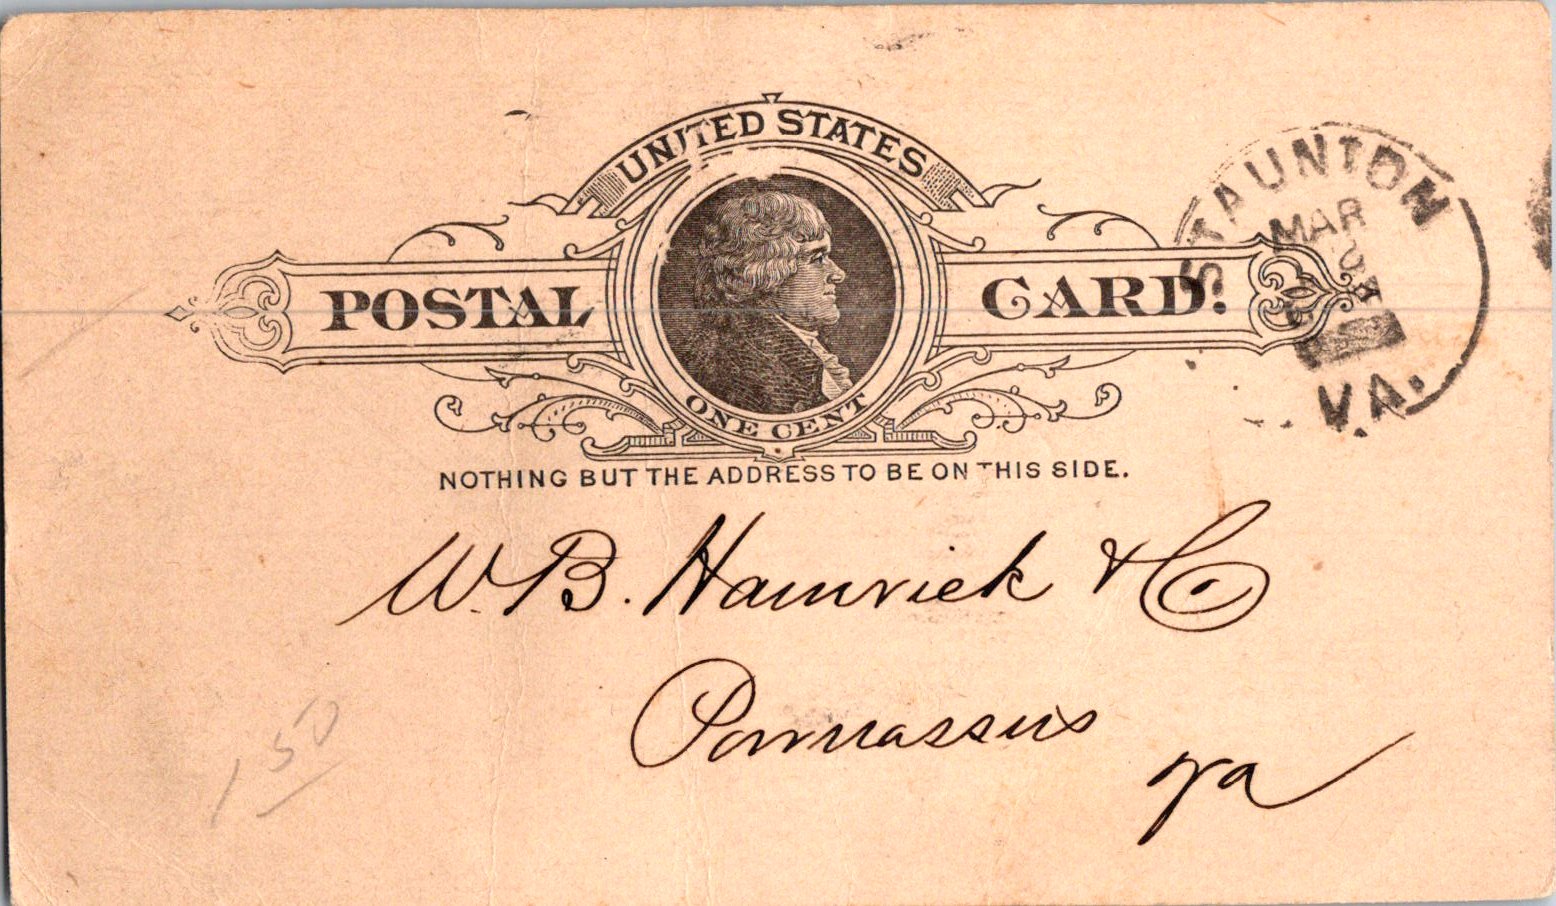 UNITED STATES
POSTAL CARD.
ONE CENT
NOTHING BUT THE ADDRESS TO BE ON THIS SIDE.
STAUNTON
MAR
VA.
W. B. Hamrick & Co
Parnassus
Va
1 50